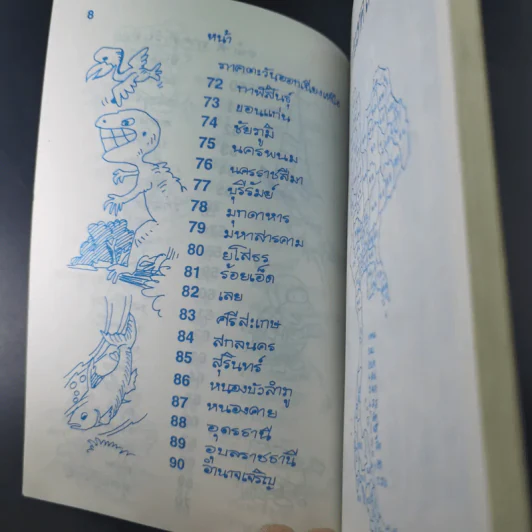 8
หน้า
ภาคตะวันออกเฉียงเหนือ
72 กาฬสินธุ์
73 ขอนแก่น
74 ชัยภูมิ
75 นครพนม
76 นครราชสีมา
77 บุรีรัมย์
78 มุกดาหาร
79 มหาสารคาม
80 ยโสธร
81 ร้อยเอ็ด
82 เลย
83 ศรีสะเกษ
84 สกลนคร
85 สุรินทร์
86 หนองบัวลำภู
87 หนองคาย
88 อุดรธานี
89 อุบลราชธานี
90 อำนาจเจริญ